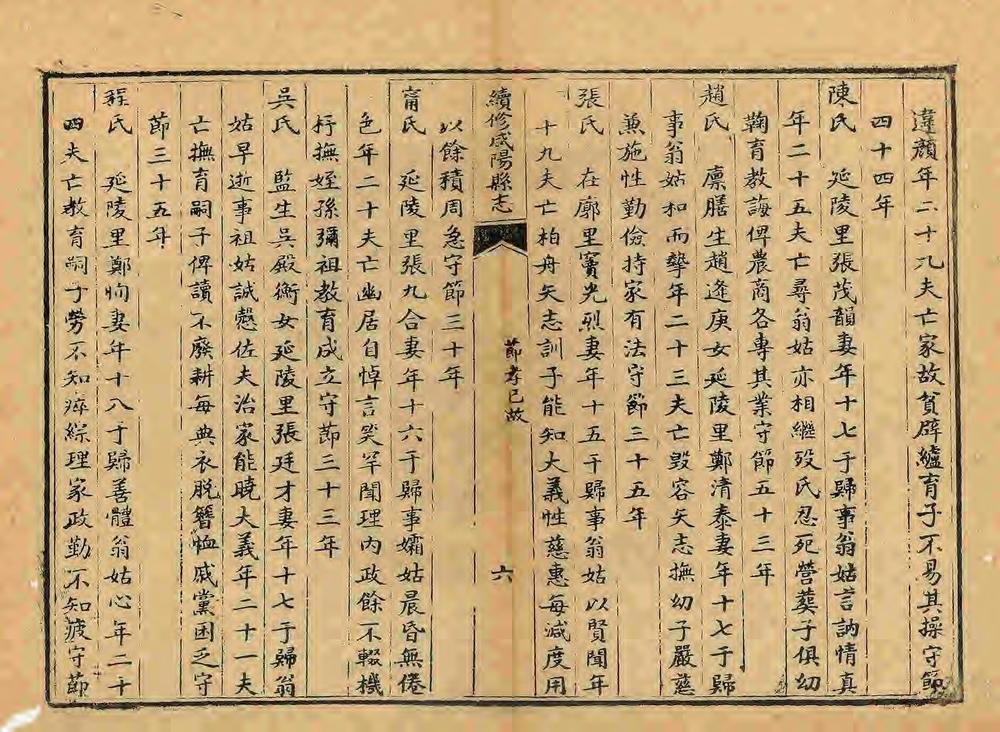 違顏年二十九夫亡家故貧辟纑育子不易其操守節
四十四年
陳氏　延陵里張茂韻妻年十七于歸事翁姑言訥情真
年二十五夫亡尋翁姑亦相繼歿氏忍死營葬子俱幼
鞠育教誨俾農商各專其業守節五十三年
趙氏　廩膳生趙逢庚女延陵里鄭清泰妻年十七于歸
事翁姑和而摯年二十三夫亡毀容矢志撫幼子嚴慈
兼施性勤儉持家有法守節三十五年
張氏　在廓里竇光烈妻年十五于歸事翁姑以賢聞年
十九夫亡柏舟矢志訓子能知大義性慈惠每減度用
續修咸陽縣志
節孝已故
六
以餘積周急守節三十年
甯氏　延陵里張九合妻年十六于歸事孀姑晨昏無倦
色年二十夫亡幽居自悼言笑罕聞理內政餘不輟機
抒撫姪孫彌祖教育成立守節三十三年
吳氏　監生吳殿衡女延陵里張廷才妻年十七于歸翁
姑早逝事祖姑誠懇佐夫治家能曉大義年二十一夫
亡撫育嗣子俾讀不廢耕每典衣脫簪恤戚黨困乏守
節三十五年
程氏　延陵里鄭恂妻年十八于歸善體翁姑心年二十
四夫亡教育嗣子勞不知瘁綜理家政勤不知疲守節